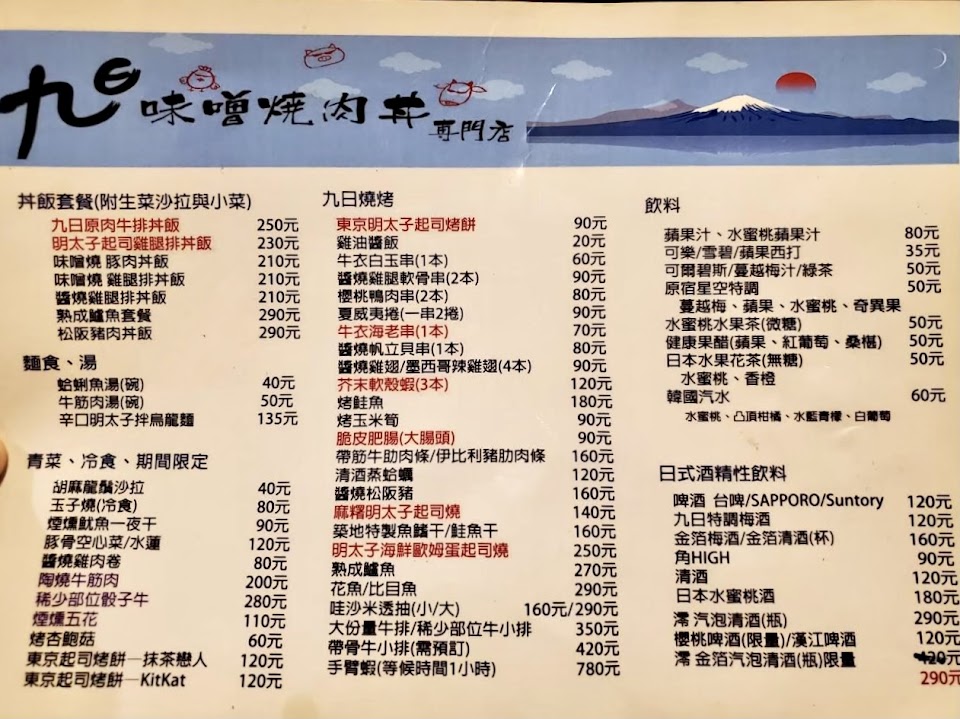 九日 味噌燒肉丼 專門店
丼飯套餐(附生菜沙拉與小菜)
九日原肉牛排丼飯 250元
明太子起司雞腿排丼飯 230元
味噌燒 豚肉丼飯 210元
味噌燒 雞腿排丼飯 210元
醬燒雞腿排丼飯 210元
熟成鱸魚套餐 290元
松阪豬肉丼飯 290元
麵食、湯
蛤蜊魚湯(碗) 40元
牛筋肉湯(碗) 50元
辛口明太子拌烏龍麵 135元
青菜、冷食、期間限定
胡麻龍鬚沙拉 40元
玉子燒(冷食) 80元
煙燻魷魚一夜干 90元
豚骨空心菜/水蓮 120元
醬燒雞肉卷 80元
陶燒牛筋肉 200元
稀少部位骰子牛 280元
煙燻五花 110元
烤杏鮑菇 60元
東京起司烤餅—抹茶戀人 120元
東京起司烤餅—KitKat 120元
九日燒烤
東京明太子起司烤餅 90元
雞油醬飯 20元
牛衣白玉串(1本) 60元
醬燒雞腿軟骨串(2本) 90元
櫻桃鴨肉串(2本) 80元
夏威夷捲(一串2捲) 90元
牛衣海老串(1本) 70元
醬燒帆立貝串(1本) 80元
醬燒雞翅/墨西哥辣雞翅(4本) 90元
芥末軟殼蝦(3本) 120元
烤鮭魚 180元
烤玉米筍 90元
脆皮肥腸(大腸頭) 90元
帶筋牛肋肉條/伊比利豬肋肉條 160元
清酒蒸蛤蠣 120元
醬燒松阪豬 160元
麻糬明太子起司燒 140元
築地特製魚鰭干/鮭魚干 160元
明太子海鮮歐姆蛋起司燒 250元
熟成鱸魚 270元
花魚/比目魚 290元
哇沙米透抽(小/大) 160元/290元
大份量牛排/稀少部位牛小排 350元
帶骨牛小排(需預訂) 420元
手臂蝦(等候時間1小時) 780元
飲料
蘋果汁、水蜜桃蘋果汁 80元
可樂/雪碧/蘋果西打 35元
可爾碧斯/蔓越梅汁/綠茶 50元
原宿星空特調 50元
蔓越梅、蘋果、水蜜桃、奇異果
水蜜桃水果茶(微糖) 50元
健康果醋(蘋果、紅葡萄、桑椹) 50元
日本水果花茶(無糖) 50元
水蜜桃、香橙
韓國汽水 60元
水蜜桃、凸頂柑橘、水藍青檬、白葡萄
日式酒精性飲料
啤酒 台啤/SAPPORO/Suntory 120元
九日特調梅酒 120元
金箔梅酒/金箔清酒(杯) 160元
角HIGH 90元
清酒 120元
日本水蜜桃酒 180元
澪 汽泡清酒(瓶) 290元
櫻桃啤酒(限量)/漢江啤酒 120元
澪 金箔汽泡清酒(瓶)限量 420元
290元